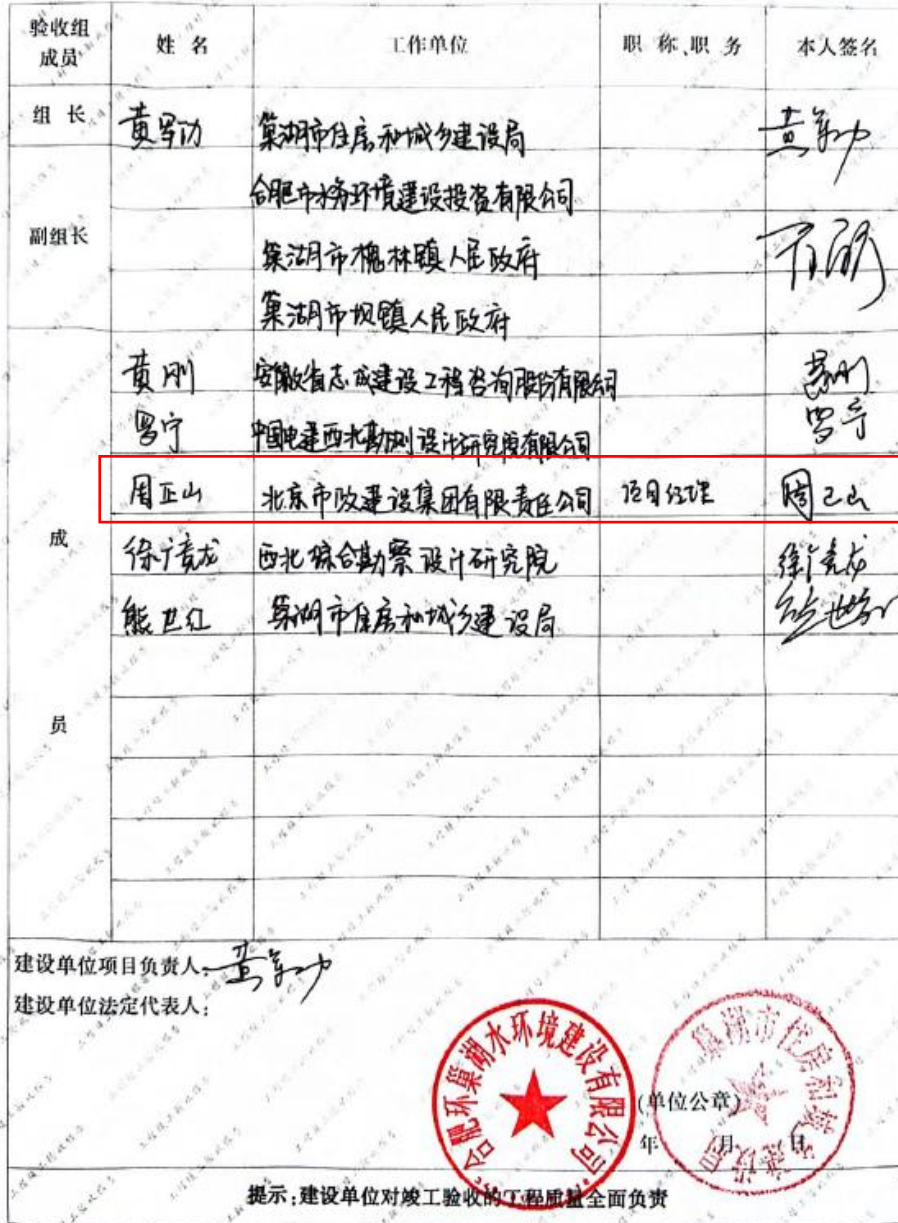 验收组成员 姓 名 工作单位 职 称、职 务 本人签名
组 长 黄军功 巢湖市住房和城乡建设局 黄军功
合肥市水务环境建设投资有限公司
副组长 巢湖市槐林镇人民政府
巢湖市坝镇人民政府
黄刚 安徽省志成建设工程咨询股份有限公司 黄刚
罗宁 中国电建西北勘测设计研究院有限公司 罗宁
周正山 北京市政建设集团有限责任公司 项目经理 周正山
成 徐广龙 西北综合勘察设计研究院
熊世红 巢湖市住房和城乡建设局 熊世红
员
建设单位项目负责人: 黄军功
建设单位法定代表人:
合肥环巢湖水环境建设有限公司
巢湖市住房和城乡建设局
(单位公章)
年 月 日
提示:建设单位对竣工验收的工程质量全面负责